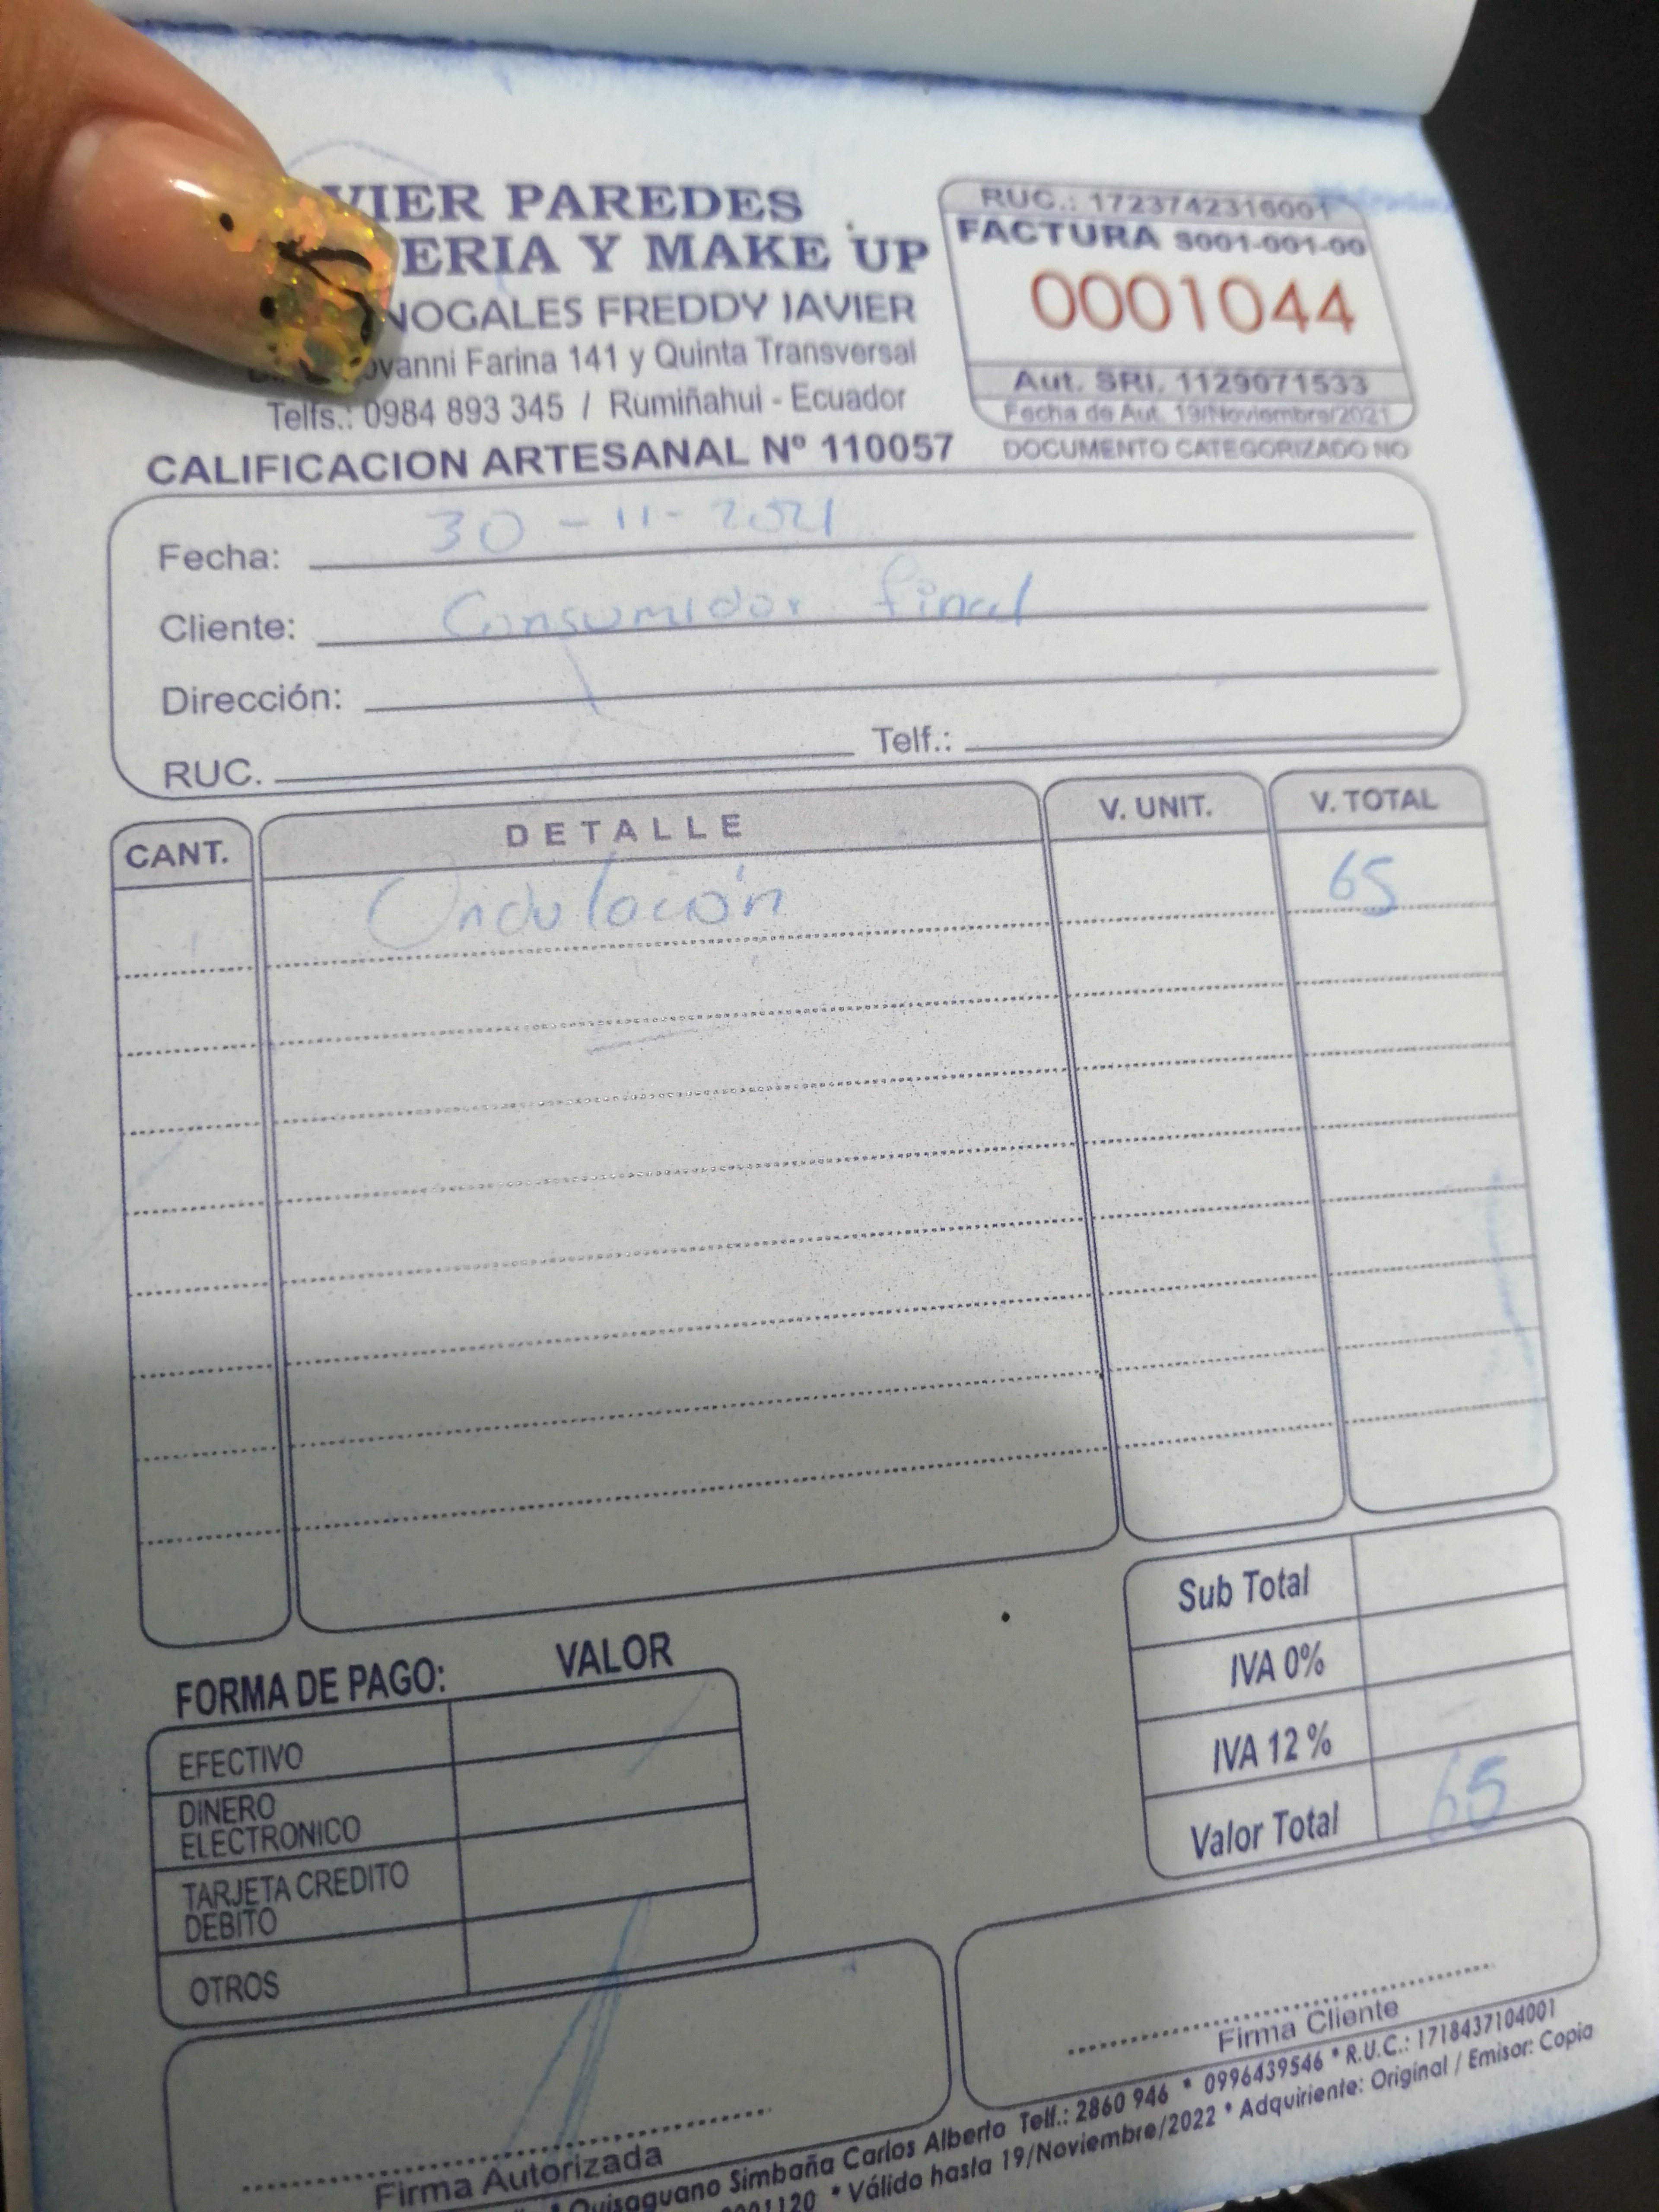 VIER PAREDES
ERIA Y MAKE UP
NOGALES FREDDY JAVIER
ovanni Farina 141 y Quinta Transversal
Telfs.: 0984 893 345 / Rumiñahui - Ecuador
CALIFICACION ARTESANAL Nº 110057
RUC.: 1723742316001
FACTURA S001-001-00
0001044
Aut. SRI. 1129071533
Fecha de Aut. 19/Noviembre/2021
DOCUMENTO CATEGORIZADO NO
Fecha: 30-11-2021
Cliente: Consumidor final
Dirección:
RUC. Telf.:
CANT. DETALLE V. UNIT. V. TOTAL
1 Ondulación 65
Sub Total
IVA 0%
IVA 12 %
Valor Total 65
FORMA DE PAGO: VALOR
EFECTIVO
DINERO
ELECTRONICO
TARJETA CREDITO
DEBITO
OTROS
Firma Autorizada
Firma Cliente
Quisaguano Simbaña Carlos Alberto Telf.: 2860 946 * 0996439546 * R.U.C.: 1718437104001
001120 * Válido hasta 19/Noviembre/2022 * Adquiriente: Original / Emisor: Copia